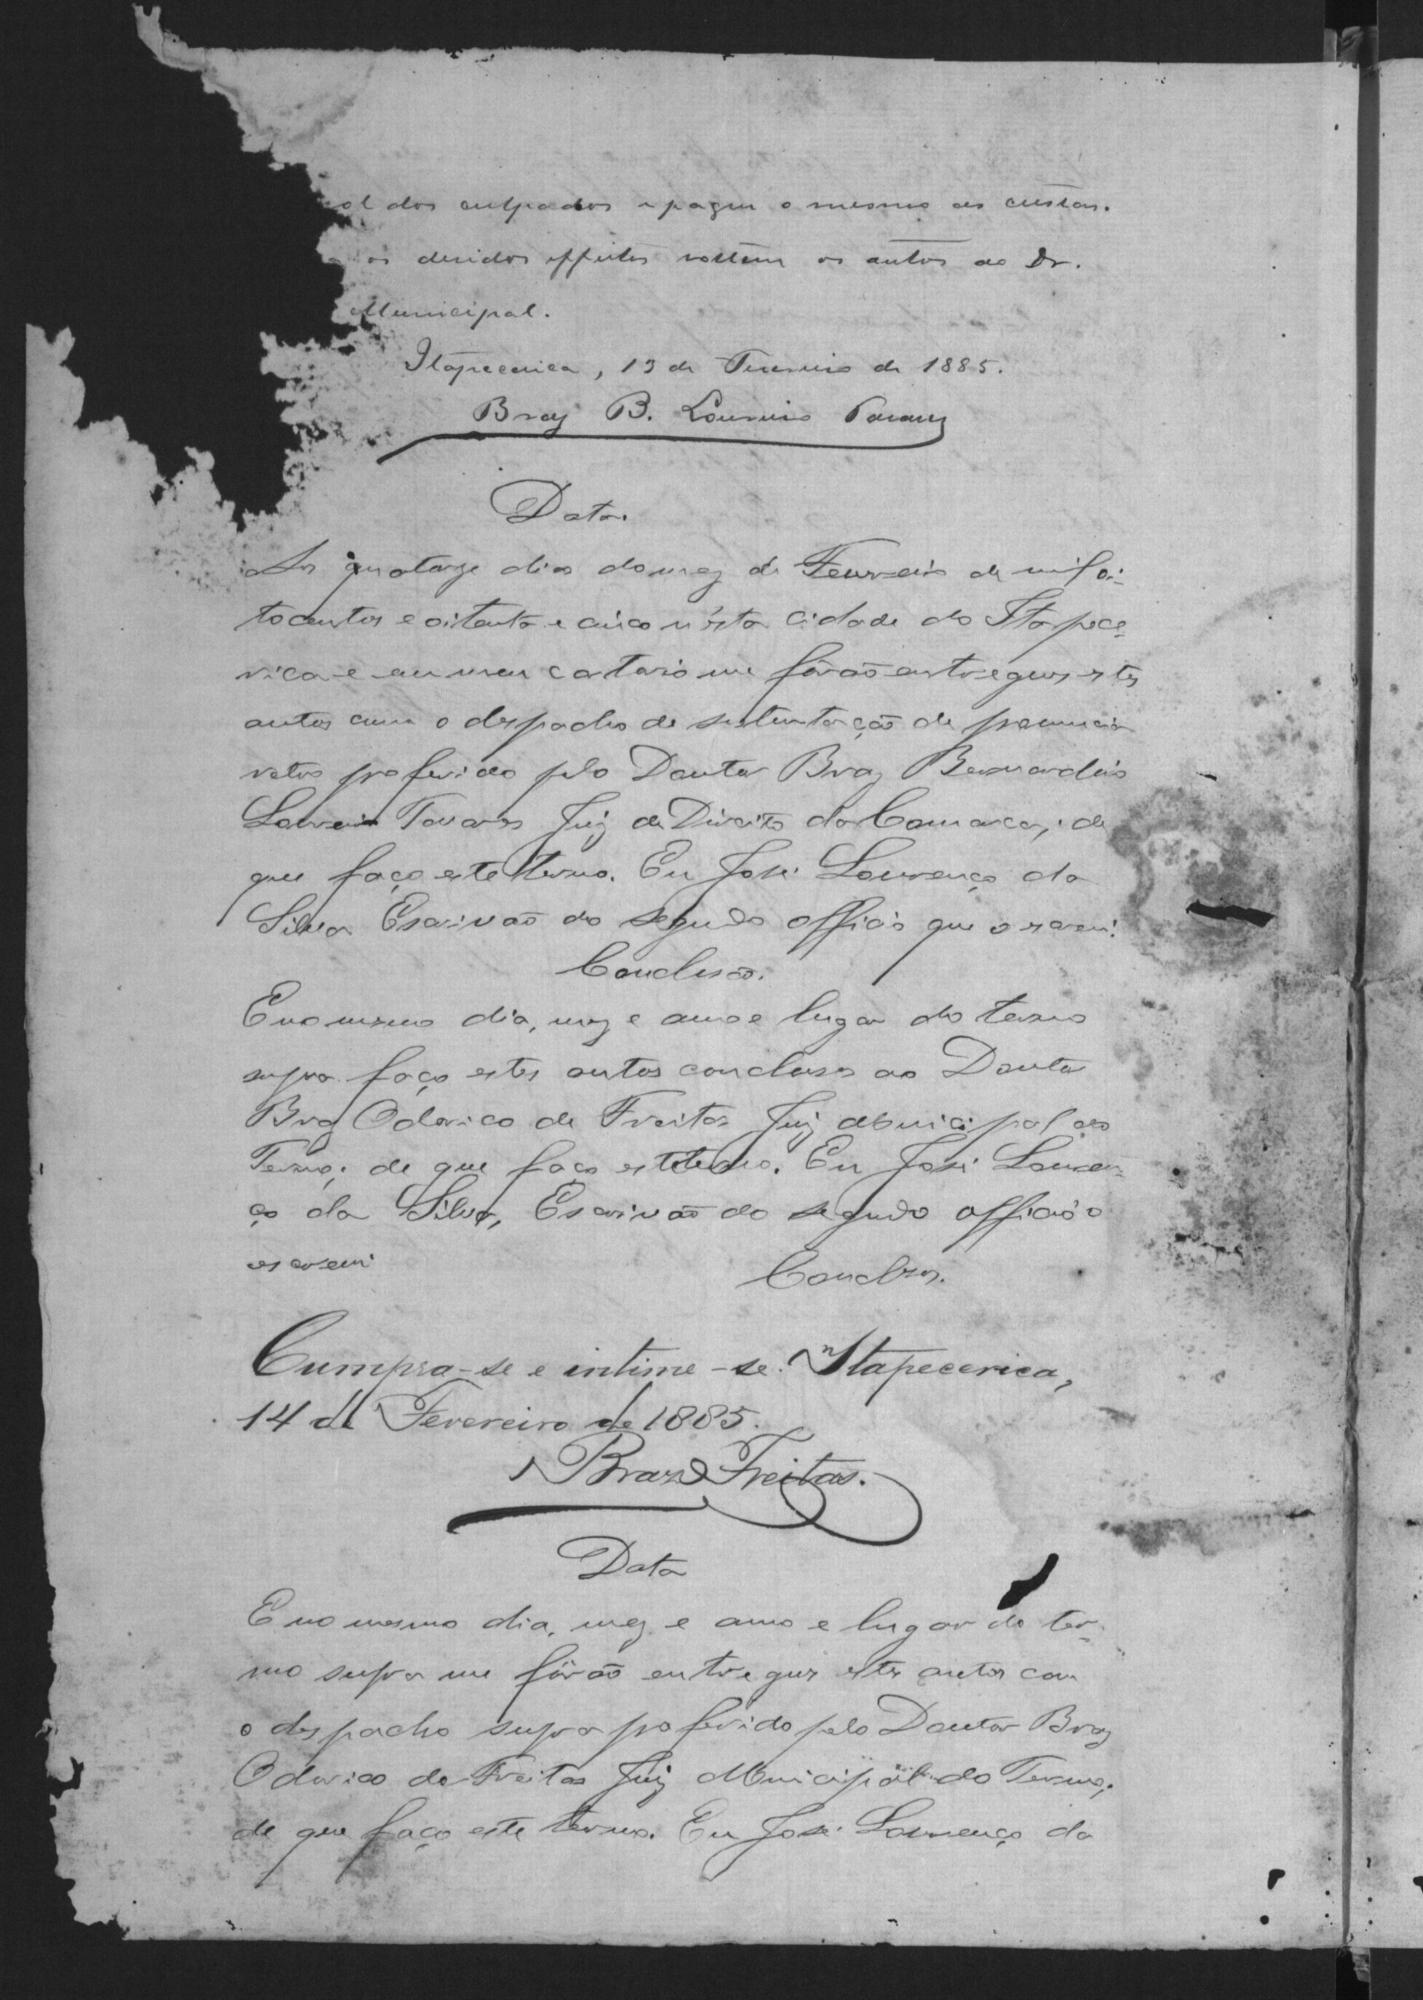 ol dos culpados e pague o mesmo as custas.
os devidos effeitos voltem os autos ao Dr.
Municipal.
Itapecerica, 13 de Fevereiro de 1885.
Braz B. Loureiro Tavares
Data.
Aos quatorze dias do mez de Fevereiro de mil oi-
tocentos e oitenta e cinco n'esta cidade do Itapece-
rica e em meu cartorio me fôrão entregues estes
autos com o despacho de sustentação de pronuncia
retro proferido pelo Doutor Braz Bernardino
Loureiro Tavares Juiz de Direito da Comarca; de
que faço este termo. Eu José Lourenço da
Silva Escrivão do segundo officio que o escrevi.
Conclusão.
E no mesmo dia, mez e anno e lugar do termo
supra faço estes autos conclusos ao Doutor
Braz Odorico de Freitas Juiz Municipal do
Termo; de que faço este termo. Eu José Louren-
ço da Silva, Escrivão do segundo officio o
escrevi
Conclusos.
Cumpra-se e intime-se. Itapecerica,
14 de Fevereiro de 1885.
Braz O Freitas.
Data
E no mesmo dia, mez e anno e lugar do ter-
mo supra me fôrão entregues estes autos com
o despacho supra proferido pelo Doutor Braz
Odorico de Freitas Juiz Municipal do Termo;
de que faço este termo. Eu José Lourenço da